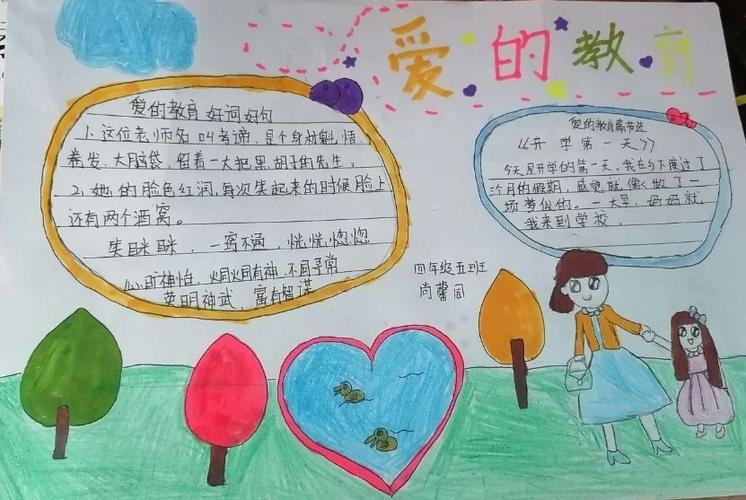 爱的教育
爱的教育好词好句
1.这位老师名叫考谛,是个身材魁梧
卷发、大脑袋,留着一大把黑胡子的先生。
2.她的脸色红润,每次笑起来的时候脸上
还有两个酒窝。
笑眯眯、一窍不通,恍恍惚惚
心旷神怡,炯炯有神、不同寻常
英明神武,富有智谋
爱的教育章节选
《开学第一天》
今天是开学的第一天,我在乡下度过了
三个月的假期,感觉就像做了一
场梦似的。一大早,妈妈就
我来到学校。
四年级五班
尚馨